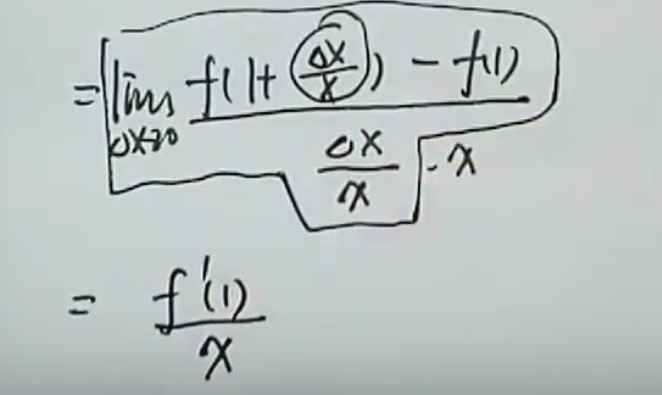 = lim Δx→0 f(1+(Δx/x)) - f(1) / Δx/x · x
= f'(1) / x